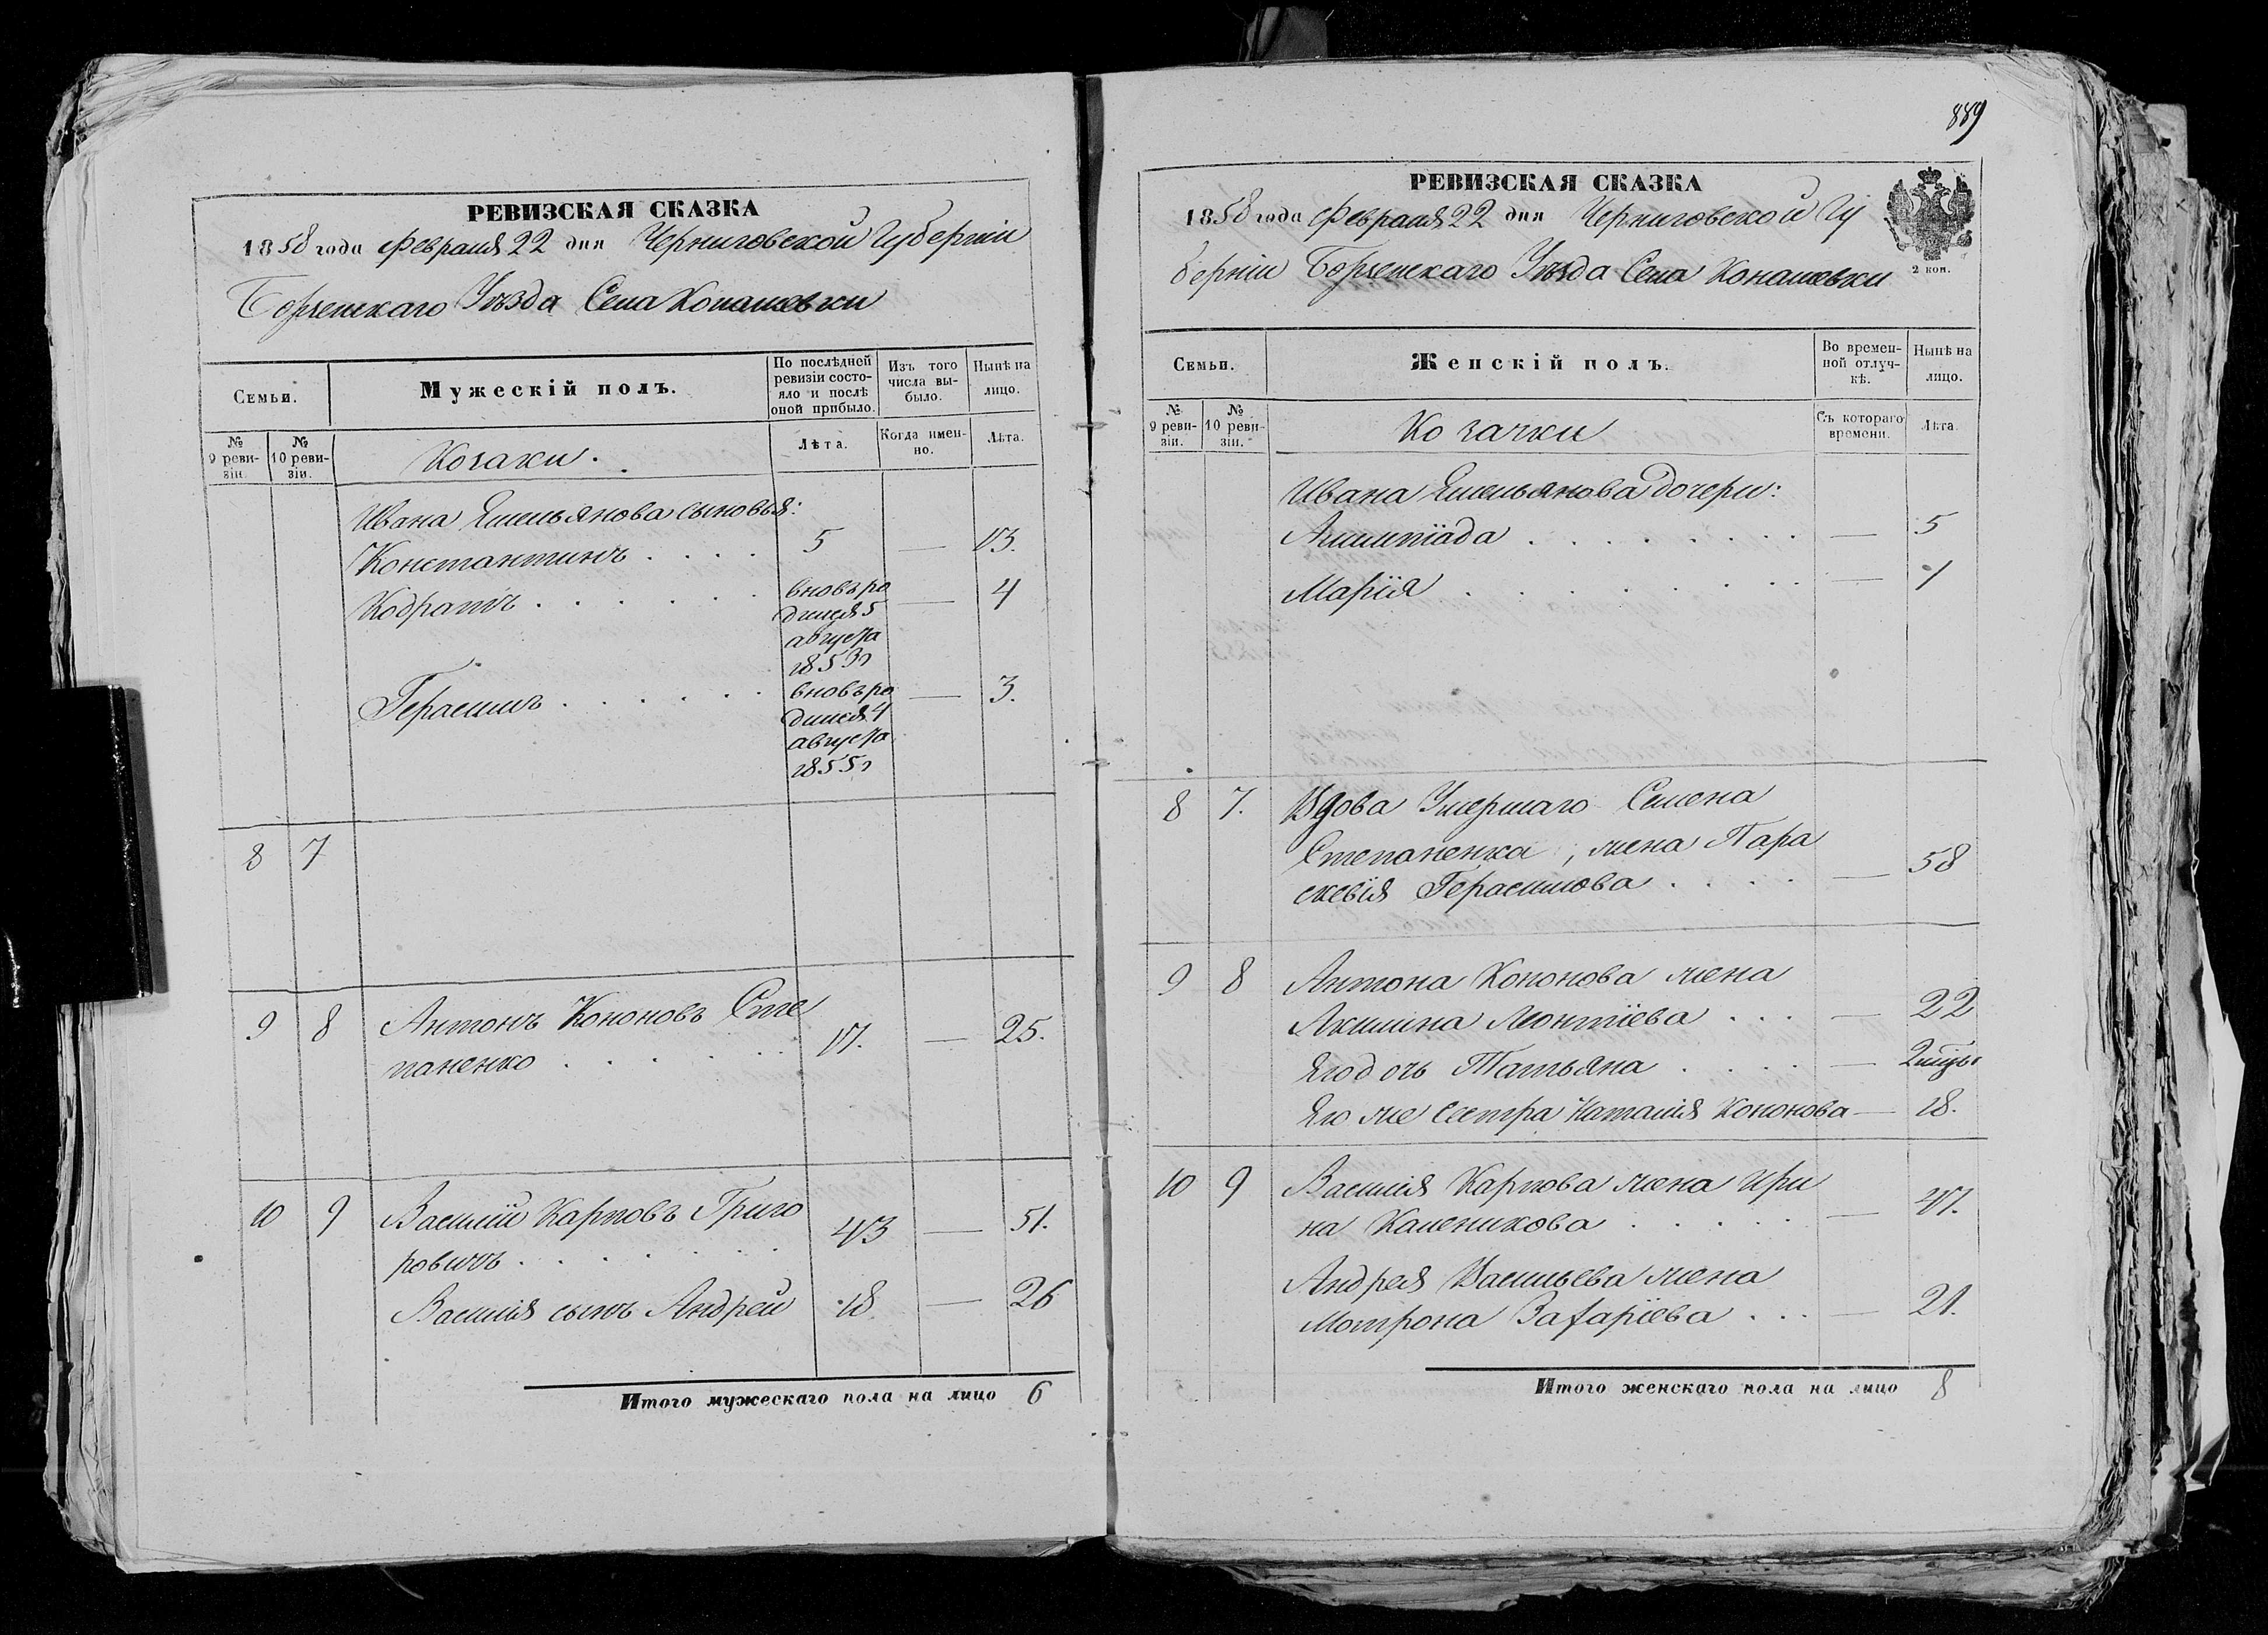 РЕВИЗСКАЯ СКАЗКА
1858 года Февраля 22 дня Черниговской Губерніи
Борзенскаго Уѣзда Села Конашевки
Семьи.
Мужескій полъ.
По послѣдней ревизіи состояло и послѣ оной прибыло.
Изъ того числа выбыло.
Нынѣ на лицо.
№ 9 ревизіи.
№ 10 ревизіи.
Козаки.
Лѣта.
Когда именно.
Лѣта.
Ивана Емельянова сыновья:
Константинъ . . . . 5 — 13.
Кодратъ . . . . . . вновь ро — 4
дился 5
августа
1853г
Герасимъ . . . . . . вновь ро — 3.
дился 4
августа
1855г
8 7
9 8 Антонъ Кононовъ Сте
паненко . . . . . . 17. — 25.
10 9 Василій Карповъ Григо
ровичъ . . . . . . 43 — 51.
Василія сынъ Андрей 18 — 26
Итого мужескаго пола на лицо 6
889
РЕВИЗСКАЯ СКАЗКА
1858 года Февраля 22 дня Черниговской Гу
берніи Борзенскаго Уѣзда Села Конашевки
2 коп.
Семьи.
Женскій полъ.
Во временной отлучкѣ.
Нынѣ на лицо.
№ 9 ревизіи.
№ 10 ревизіи.
Козачки
Съ котораго времени.
Лѣта.
Ивана Емельянова дочери:
Алимпіада . . . . . . . . — 5
Марія . . . . . . . . — 1
8 7. Вдова Умершаго Семена
Степаненка, жена Пара
скевія Герасимова . . . . — 58
9 8 Антона Кононова жена
Акилина Леонтіева . . . — 22
Его дочь Татьяна . . . . —
Его же сестра Наталія Кононова — 18.
10 9 Василія Карпова жена Ири
на Каленикова . . . . . — 47.
Андрея Васильева жена
Мотрона Захаріева . . . — 21.
Итого женскаго пола на лицо 8